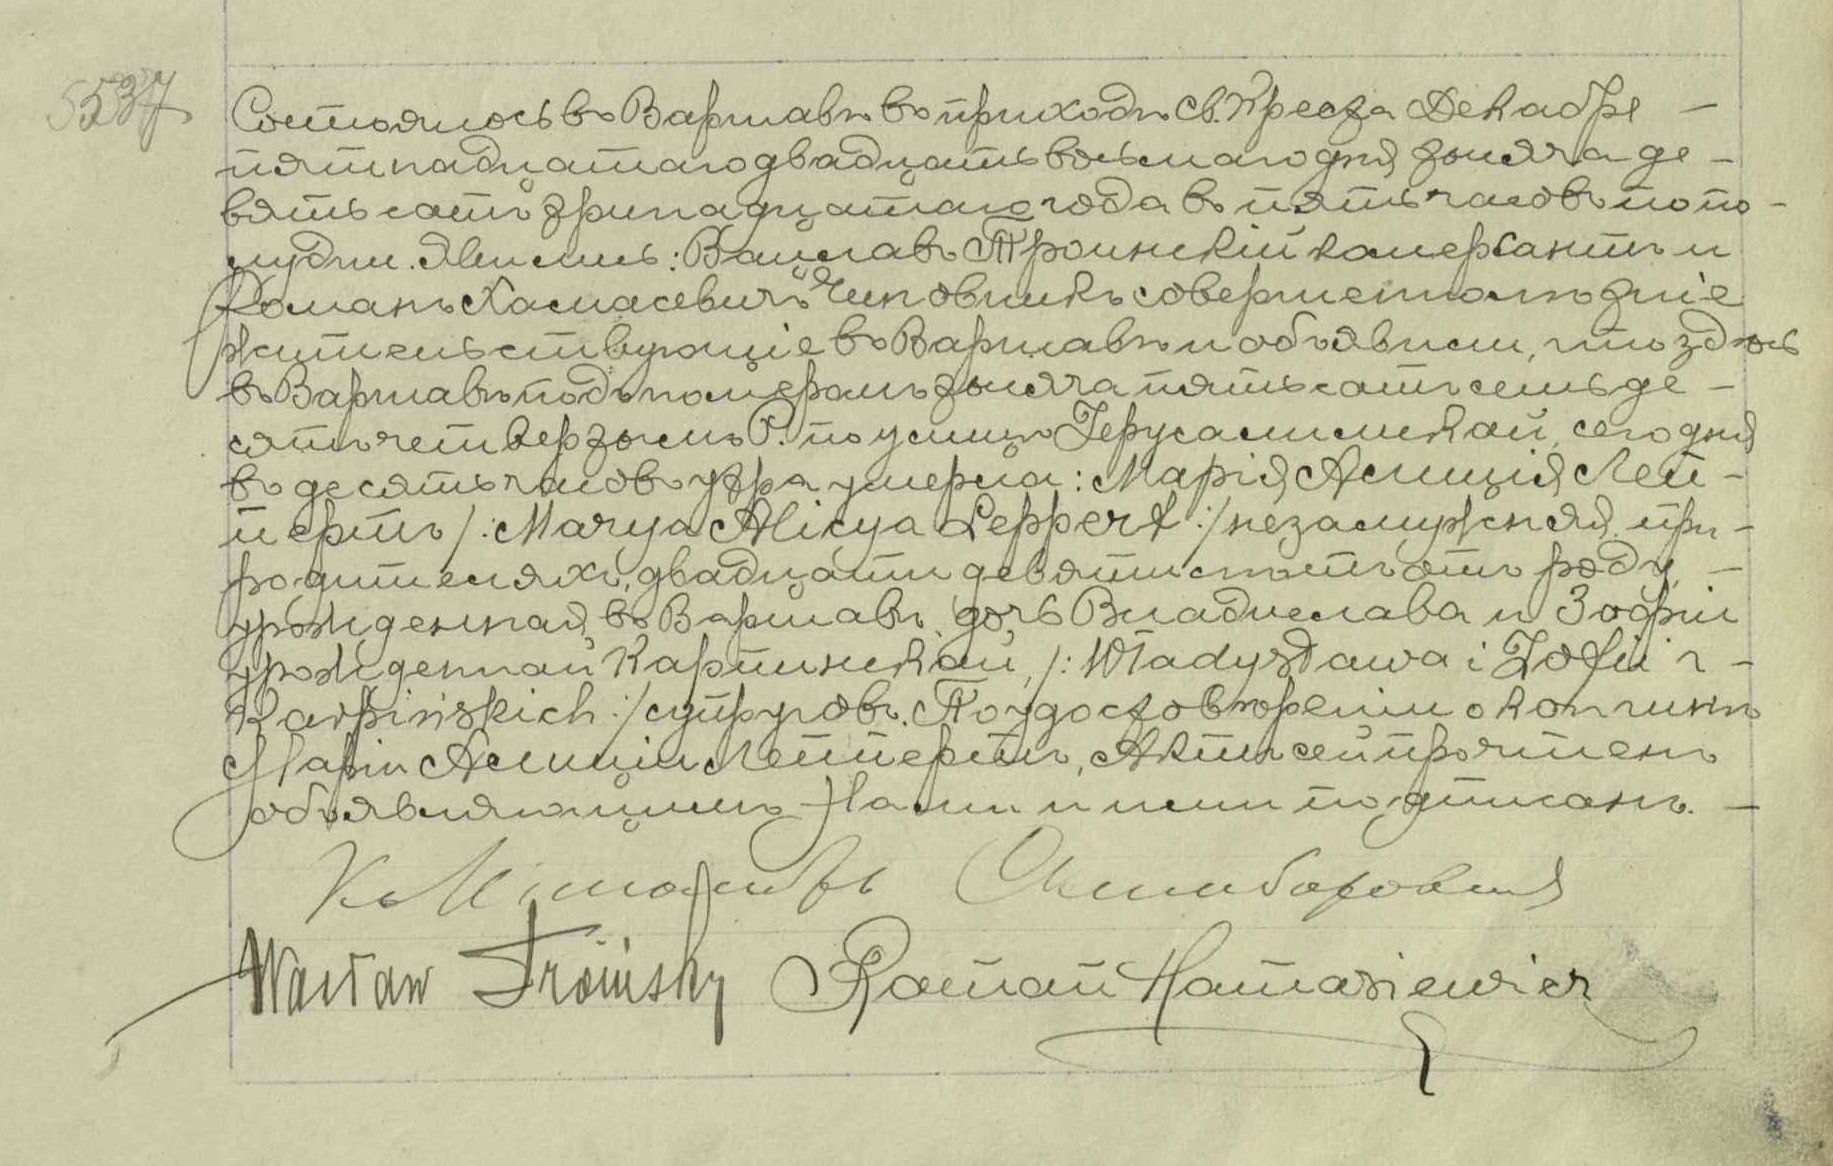 5537
Состоялось въ Варшавѣ въ приходѣ Св. Креста Декабря —
пятнадцатаго двадцать восьмаго дня тысяча де-
вятьсотъ тринадцатаго года въ пять часовъ по по-
лудни. Явились: Вацлавъ Троинскій комерсантъ и
Романъ Хамасевичъ Чиновникъ совершеннолѣтніе
жительствующіе въ Варшавѣ и объявили, что здѣсь
въ Варшавѣ подъ номеромъ тысяча пятьсотъ семьде-
сятъ четвертымъ Р. по улицѣ Іерусалимской, сегодня
въ десять часовъ утра умерла: Марія Алиція Леп-
пертъ /: Marya Alicya Leppert :/ незамужняя при
родителяхъ, двадцати девяти лѣтъ отъ роду, —
урожденная въ Варшавѣ, дочь Владислава и Зофіи
урожденной Карпинской, /: Władysława i Zofii z —
Karpińskich :/ супруговъ. По удостовѣреніи о кончинѣ
Маріи Алиціи Леппертъ, Актъ сей прочтенъ
объявляющимъ Нами и ими подписанъ. —
Wacław Troinsky Roman Hamasiewicz